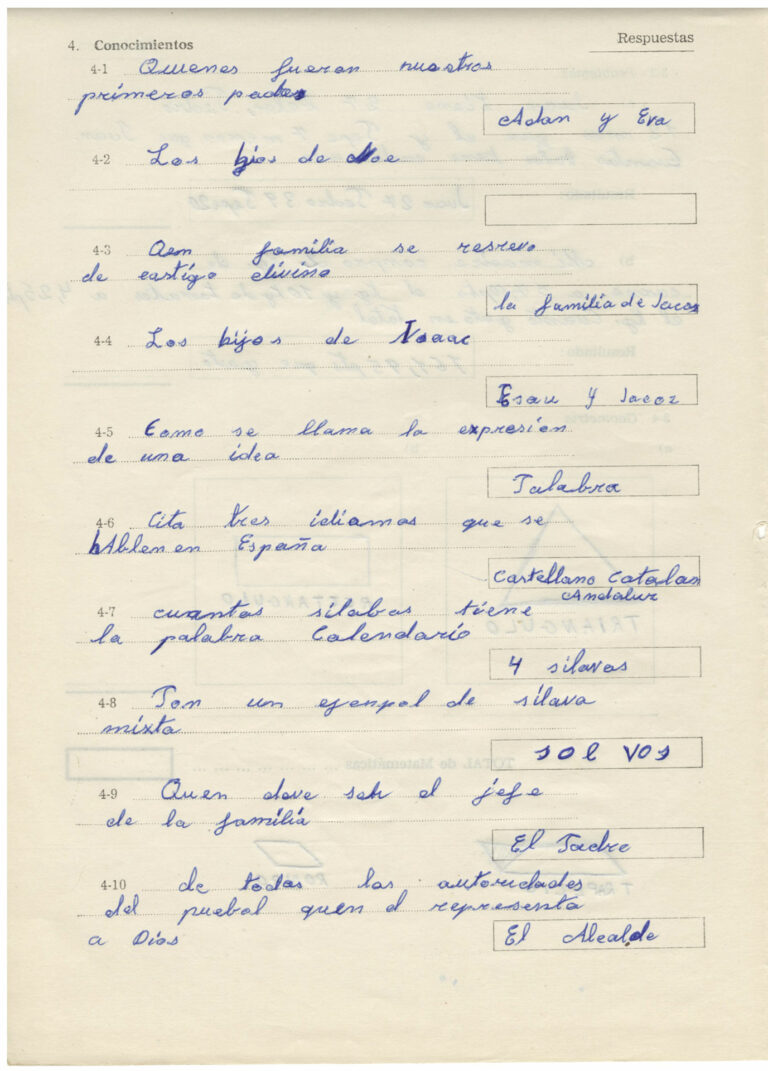 4. Conocimientos
Respuestas
4-1 Quienes fueron nuestros
primeros padres
Adan y Eva
4-2 Los hijos de Noe
4-3 Qen familia se resrevo
de castigo divino
la familia de Jacoz
4-4 Los hijos de Isaac
Esau y Jacoz
4-5 Como se llama la expresion
de una idea
Palabra
4-6 Cita tres idiamos que se
hAblen en España
Castellano Catalan
Andaluz
4-7 cuantas silabas tiene
la palabra Calendario
4 silavas
4-8 Pon un ejenpol de silava
mixta
sol vos
4-9 Quen deve seh el jefe
de la familia
El Padre
4-10 de todas las autoridades
del puebol quen el representa
a Dios
El Alcalde
TOTAL de Matemáticas
Resultado:
Resultado:
TRIANGULO